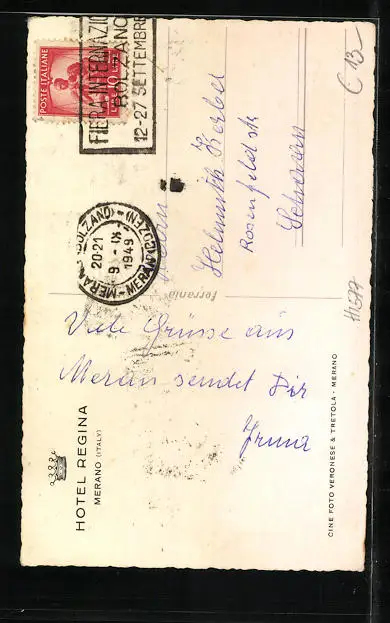 POSTE ITALIANE
10 LIRE
FIERA INTERNAZIO
BOLZANO
12-27 SETTEMBRE
MERANO (BOLZANO)
20-21
9 - IX
1949
MERAN (BOZEN)
C 13-
Helmuth Kerbel
Rosenfeldstr
ferrania
Viele Grüsse aus
Meran sendet Dir
Irma
HOTEL REGINA
MERANO (ITALY)
CINE FOTO VERONESE & TRETTOLA - MERANO